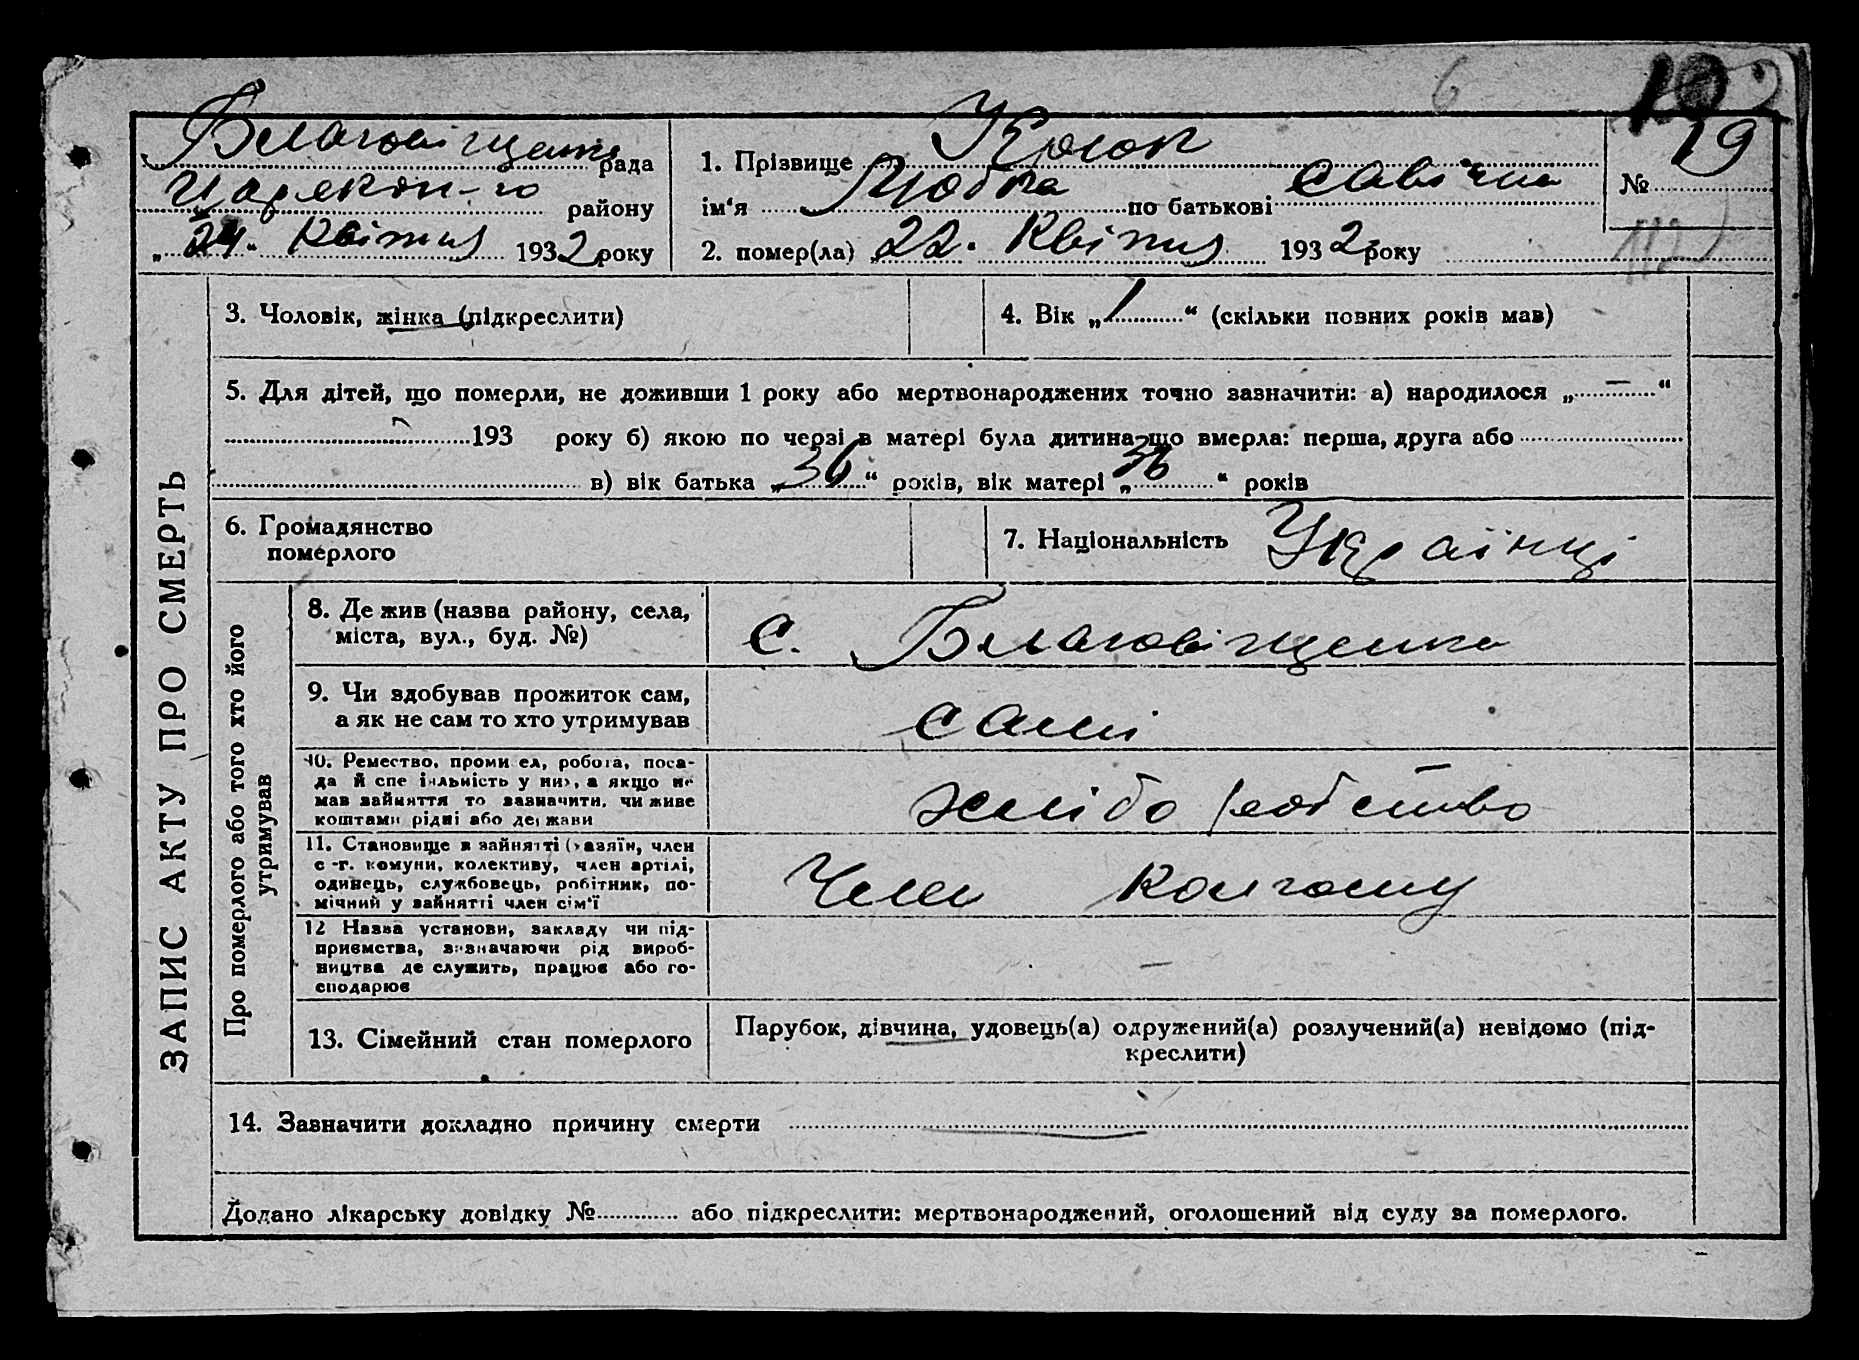 6
19
Благовіщенка рада
Царекон-го району
„24“ Квітня 1932 року
1. Прізвище Крюк
ім‘я Любка по батькові Савічна
2. помер(ла) 22. Квітня 1932 року
№
112
ЗАПИС АКТУ ПРО СМЕРТЬ
3. Чоловік, жінка (підкреслити)
4. Вік „1“ (скільки повних років мав)
5. Для дітей, що померли, не доживши 1 року або мертвонароджених точно зазначити: а) народилося „—“
193 року б) якою по черзі в матері була дитина що вмерла: перша, друга або
в) вік батька „36“ років, вік матері „36“ років
6. Громадянство
померлого
7. Національність Українці
Про померлого або того хто його
утримував
8. Де жив (назва району, села,
міста, вул., буд. №)
с. Благовіщенка
9. Чи здобував прожиток сам,
а як не сам то хто утримував
самі
10. Ремество, проми ел, робота, поса-
да й спе іяльність у них, а якщо не
мав зайняття то зазначити, чи живе
коштами рідні або держави
хлібо робство
11. Становище в зайнятті (хазяїн, член
с-г. комуни, колективу, член артілі,
одинець, службовець, робітник, по-
мічний у зайнятті член сім‘ї
Член колгоспу
12 Назва установи, закладу чи під-
приємства, зазначаючи рід вироб-
ництва де служить, працює або го-
сподарює
—
13. Сімейний стан померлого
Парубок, дівчина, удовець(а) одружений(а) розлучений(а) невідомо (під-
креслити)
14. Зазначити докладно причину смерти
Додано лікарську довідку № або підкреслити: мертвонароджений, оголошений від суду за померлого.